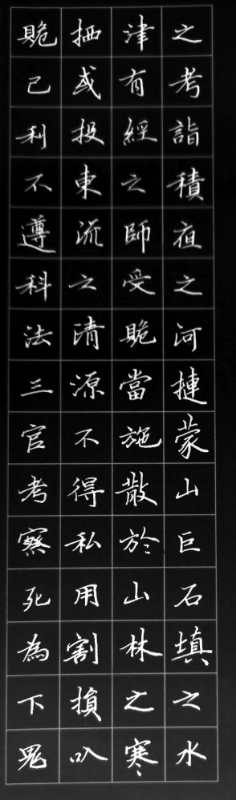 之考詣積夜之河摙蒙山巨石填之水
津有經之師受䞈當施散於山林之寒
栖或投東流之清源不得私用割損以
䞈己利不遵科法三官考察死為下鬼